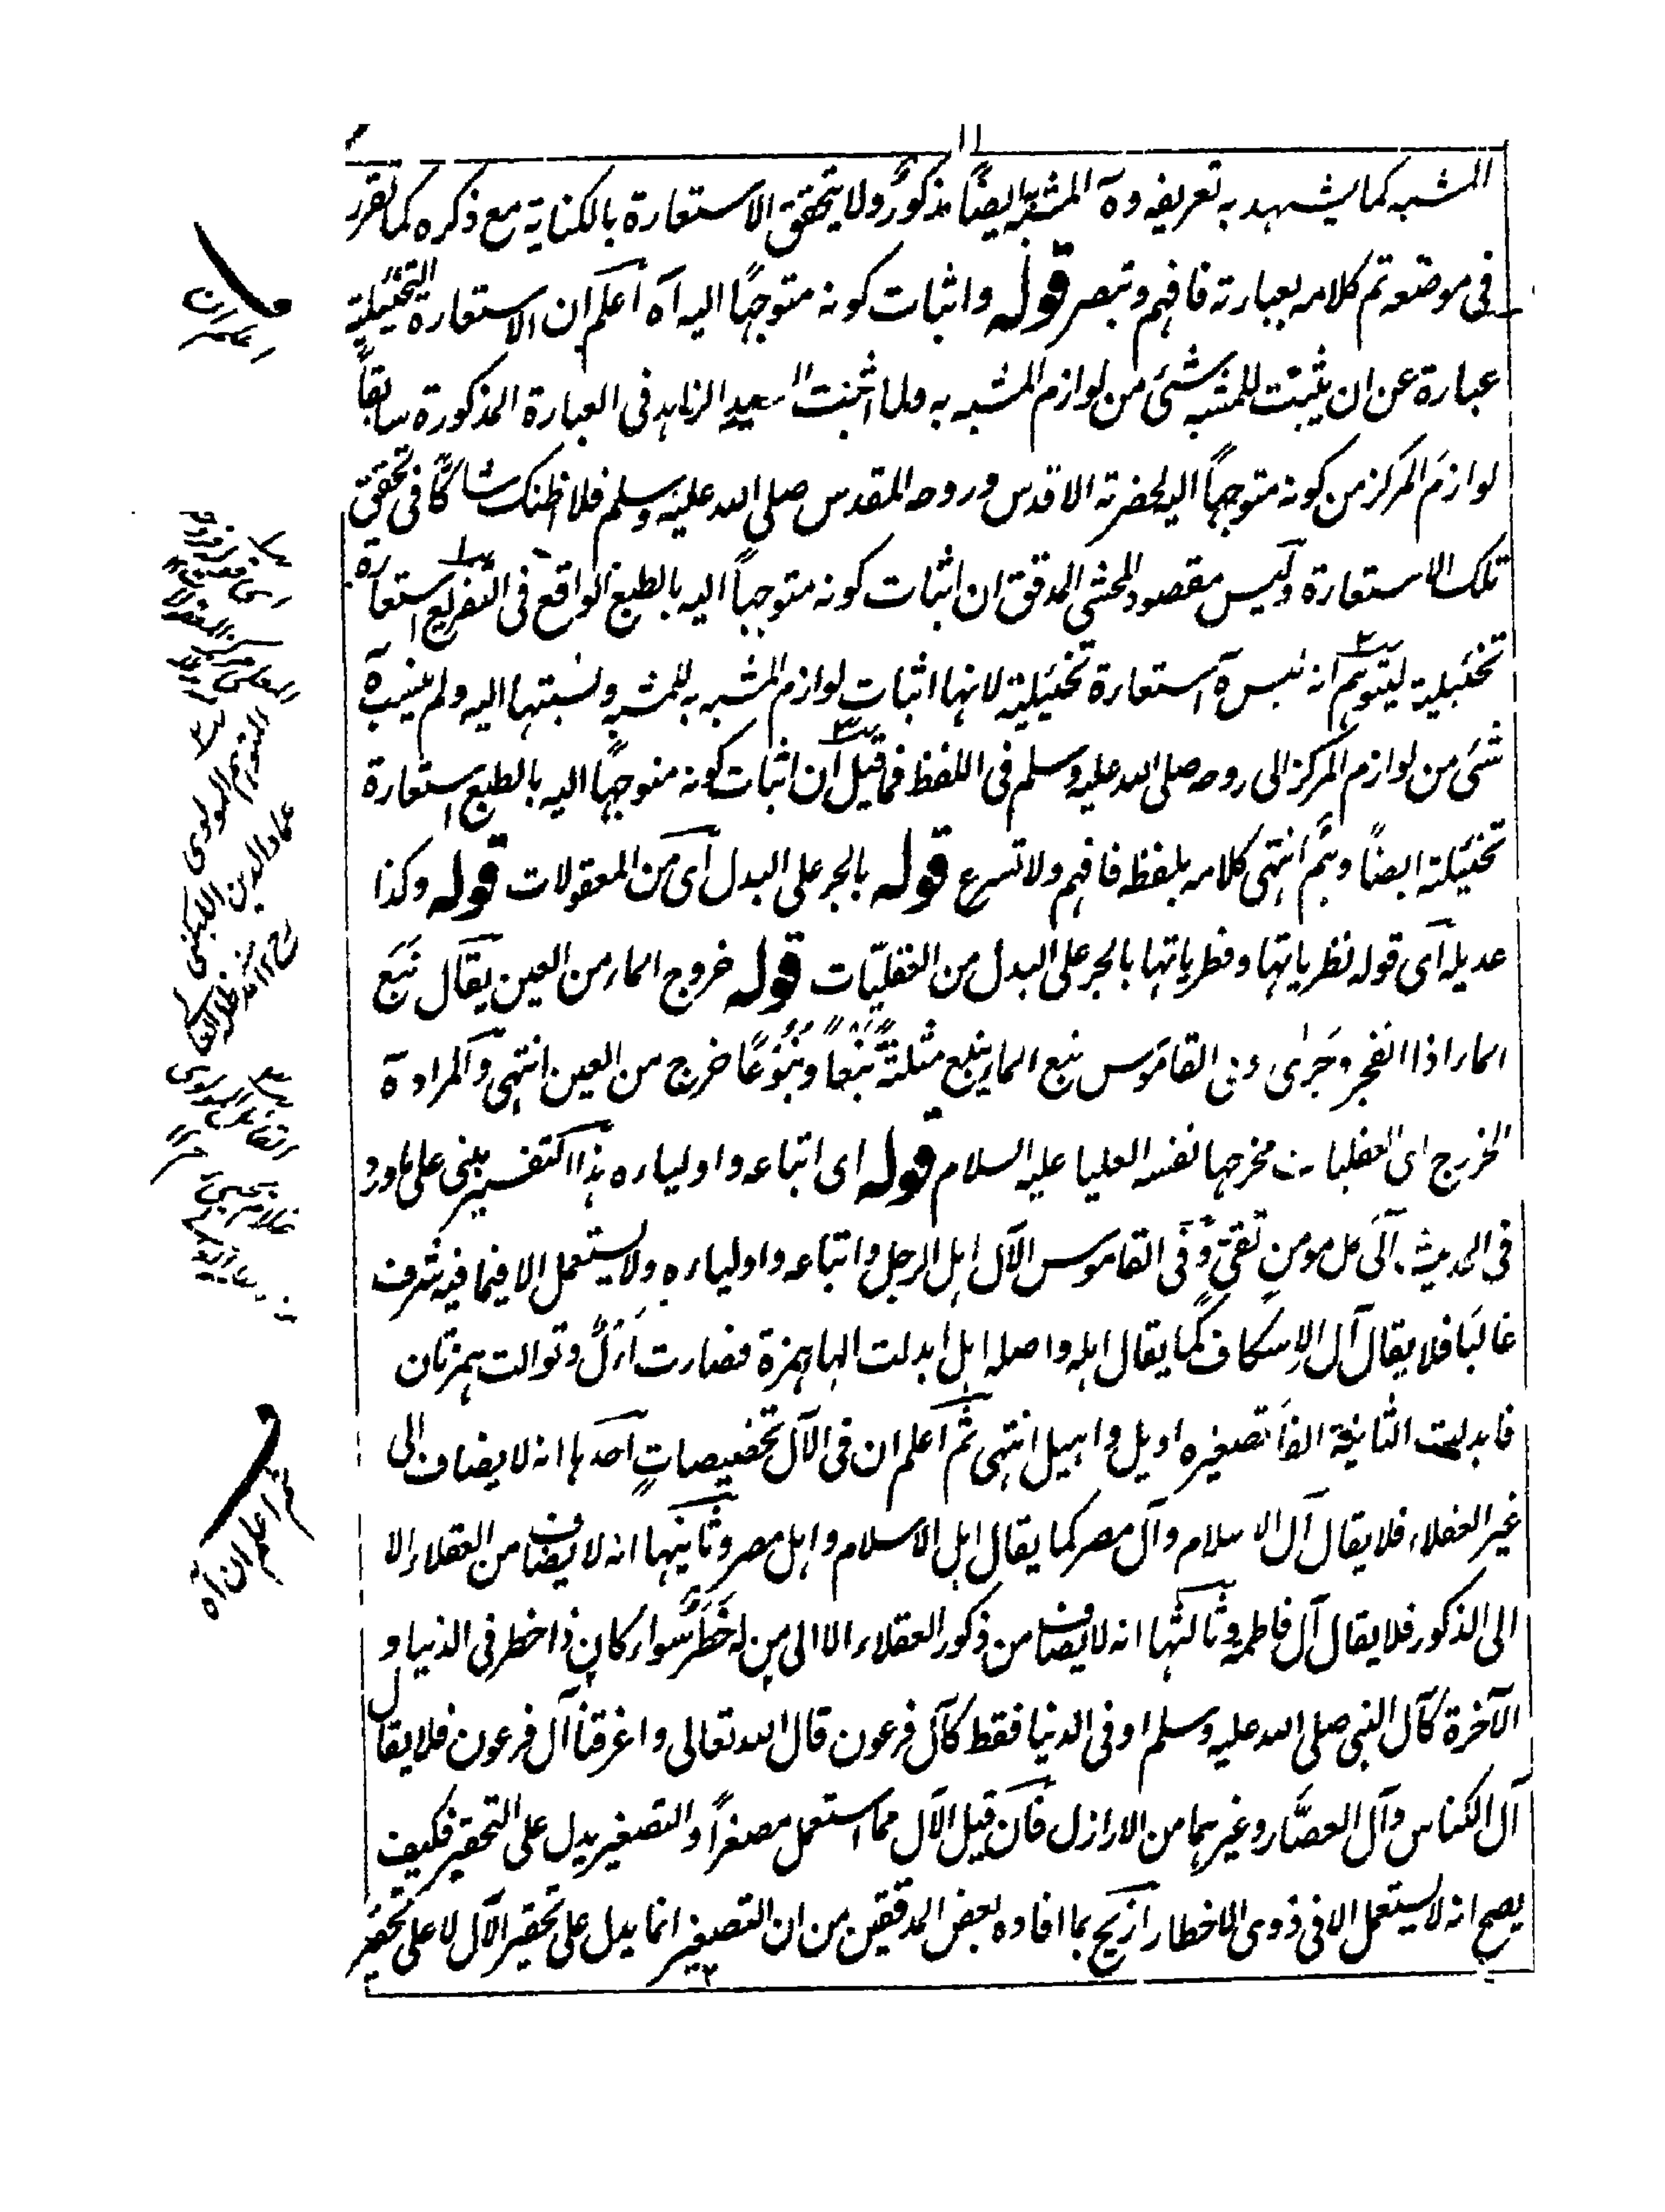 ١١
المشبه كما يشهد به تعريفه وه المشبه ايضاً مذكورٌ ولا يتحقق الاستعارة بالكناية مع ذكره كما تقرر
فى موضعه تم كلامه بعبارته فافهم وتبصر قوله واثبات كونه متوجهًا اليه آه اعلم ان الاستعارة التخئيلية
عبارة عن ان يثبت للمشبه شئ من لوازم المشبه به ولما اثبت السيد الزاهد فى العبارة المذكورة سابقاً
لوازم المركز من كونه متوجهاً اليه لحضرته الاقدس وروحه المقدس صلى الله عليه وسلم فلا اظنك شاكًّا فى تحقق
تلك الاستعارة وليس مقصود المحشى المدقق ان اثبات كونه متوجهاً اليه بالطبع الواقع فى التفريع استعارة
تخئيلية ليتوهم انه ليس ه استعارة تخئيلية لانها اثبات لوازم المشبه به للمشبه ونسبتها اليه ولم ينسب ه
شئ من لوازم المركز الى روحه صلى الله عليه وسلم فى اللفظ فما قيل ان اثبات كونه متوجهًا اليه بالطبع استعارة
تخئيلية ايضاً وهم انتهى كلامه بلفظه فافهم ولا تسرع قوله بالجر على البدل اى من المعقولات قوله وكذا
عديله اى قوله نظرياتها وفطرياتها بالجر على البدل من العقليّات قوله خروج الماء من العين يقال نبع
الماء اذا انفجر وجرى وفى القاموس نبع الماء ينبع مثلثةً نبعاً ونبوعًا خرج من العين انتهى والمراد ه
المخرج اى العقليات مخرجها نفسه العليا عليه السلام قوله اى اتباعه واولياءه هذا التفسير مبنى على ما ورد
فى الحديث آلى كل مومن تقى وفى القاموس الآل اهل الرجل واتباعه واولياءه ولا يستعمل الا فيما فيه شرف
غالبًا فلا يقال آل الاسكاف كما يقال اهله واصله اهل ابدلت الهاء همزة فصارت أأل وتوالت همزتان
فابدلت الثانية الفاً تصغيره اويل واهيل انتهى ثم اعلم ان فى الآل تخصيصات احدها انه لا يضاف الى
غير العقلاء فلا يقال آل الاسلام وآل مصر كما يقال اهل الاسلام واهل مصر وثانيها انه لا يضاف من العقلاء الا
الى الذكور فلا يقال آل فاطمة وثالثها انه لا يضاف من ذكور العقلاء الا الى من له خطر سواء كان ذا خطر فى الدنيا و
الآخرة كآل النبى صلى الله عليه وسلم او فى الدنيا فقط كآل فرعون قال الله تعالى واغرقنا آل فرعون فلا يقال
آل الكناس وآل العصّار وغيرهما من الاراذل فان قيل الآل مما استعمل مصغراً والتصغير يدل على التحقير فكيف
يصح انه لا يستعمل الا فى ذوى الاخطار ازيح بما افاده بعض المدققين من ان التصغير انما يدل على تحقير الآل لا على تحقير
المولوى
عماد الدين اللبكنى
ثم اعلم ان آه